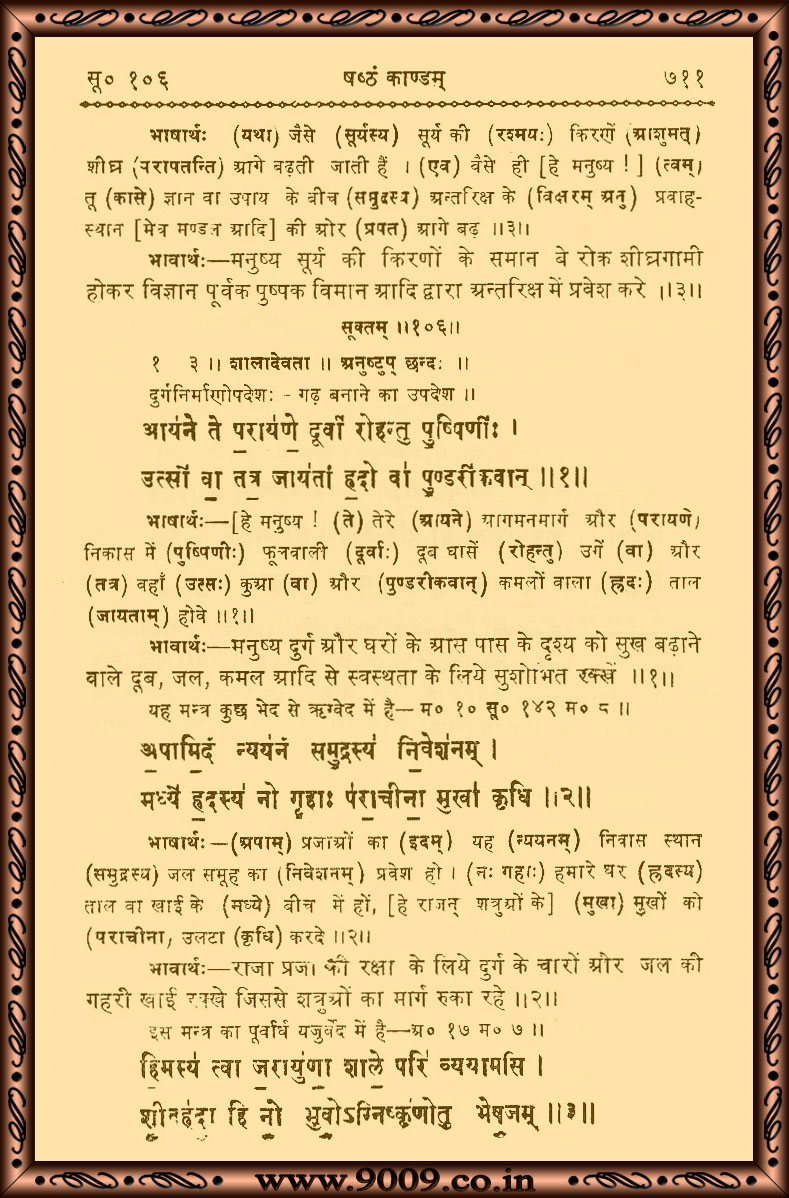 सू० १०६ षष्ठं काण्डम् ७११
भाषार्थः (यथा) जैसे (सूर्यस्य) सूर्य की (रश्मयः) किरणें (आशुमत्)
शीघ्र (परापतन्ति) आगे बढ़ती जाती हैं । (एव) वैसे ही [हे मनुष्य !] (त्वम्)
तू (कासे) ज्ञान वा उपाय के बीच (समुद्रस्य) अन्तरिक्ष के (विक्षरम् अनु) प्रवाह-
स्थान [मेघ मण्डल आदि] की ओर (प्रपत) आगे बढ़ ॥३॥
भावार्थः—मनुष्य सूर्य की किरणों के समान वे रोक शीघ्रगामी
होकर विज्ञान पूर्वक पुष्पक विमान आदि द्वारा अन्तरिक्ष में प्रवेश करे ॥३॥
सूक्तम् ॥१०६॥
१ ३ ॥ शालादेवता ॥ अनुष्टुप् छन्दः ॥
दुर्गनिर्माणोपदेशः - गढ़ बनाने का उपदेश ॥
आय॑ने ते प॒राय॑णे॒ दूर्वा॑ रोहन्तु पु॒ष्पिणीः॑ ।
उत्सो॑ वा॒ तत्र॒ जाय॑तां ह्र॒दो वा॑ पु॒ण्डरी॑कवान् ॥१॥
भाषार्थः—[हे मनुष्य ! (ते) तेरे (आयने) आगमनमार्ग और (परायणे)
निकास में (पुष्पिणीः) फूलवाली (दूर्वाः) दूब घासें (रोहन्तु) उगें (वा) और
(तत्र) वहाँ (उत्सः) कुआ (वा) और (पुण्डरीकवान्) कमलों वाला (ह्रदः) ताल
(जायताम्) होवे ॥१॥
भावार्थः—मनुष्य दुर्ग और घरों के आस पास के दृश्य को सुख बढ़ाने
वाले दूब, जल, कमल आदि से स्वस्थता के लिये सुशोभित रक्खें ॥१॥
यह मन्त्र कुछ भेद से ऋग्वेद में है— म० १० सू० १४२ म० ८ ॥
अ॒पामि॒दं न्यय॑नं समु॒द्रस्य॑ नि॒वेश॑नम् ।
मध्ये॑ ह्र॒दस्य॑ नो गृ॒हाः प॑रा॒चीना॒ मुखा॑ कृधि ॥२॥
भाषार्थः—(अपाम्) प्रजाओं का (इदम्) यह (न्ययनम्) निवास स्थान
(समुद्रस्य) जल समूह का (निवेशनम्) प्रवेश हो । (नः गहाः) हमारे घर (ह्रदस्य)
ताल वा खाई के (मध्ये) बीच में हों, [हे राजन् शत्रुओं के] (मुखा) मुखों को
(पराचीना) उलटा (कृधि) करदे ॥२॥
भावार्थः—राजा प्रजा की रक्षा के लिये दुर्ग के चारों ओर जल की
गहरी खाई रक्खे जिससे शत्रुओं का मार्ग रुका रहे ॥२॥
इस मन्त्र का पूर्वार्ध यजुर्वेद में है—अ० १७ म० ७ ॥
हि॒मस्य॑ त्वा ज॒रायु॑णा॒ शाले॒ परि॑ व्ययामसि ।
शी॒तह्र॑दा॒ हि नो॒ भुवो॒ऽग्निष्कृ॑णोतु भेष॒जम् ॥३॥
www.9009.co.in